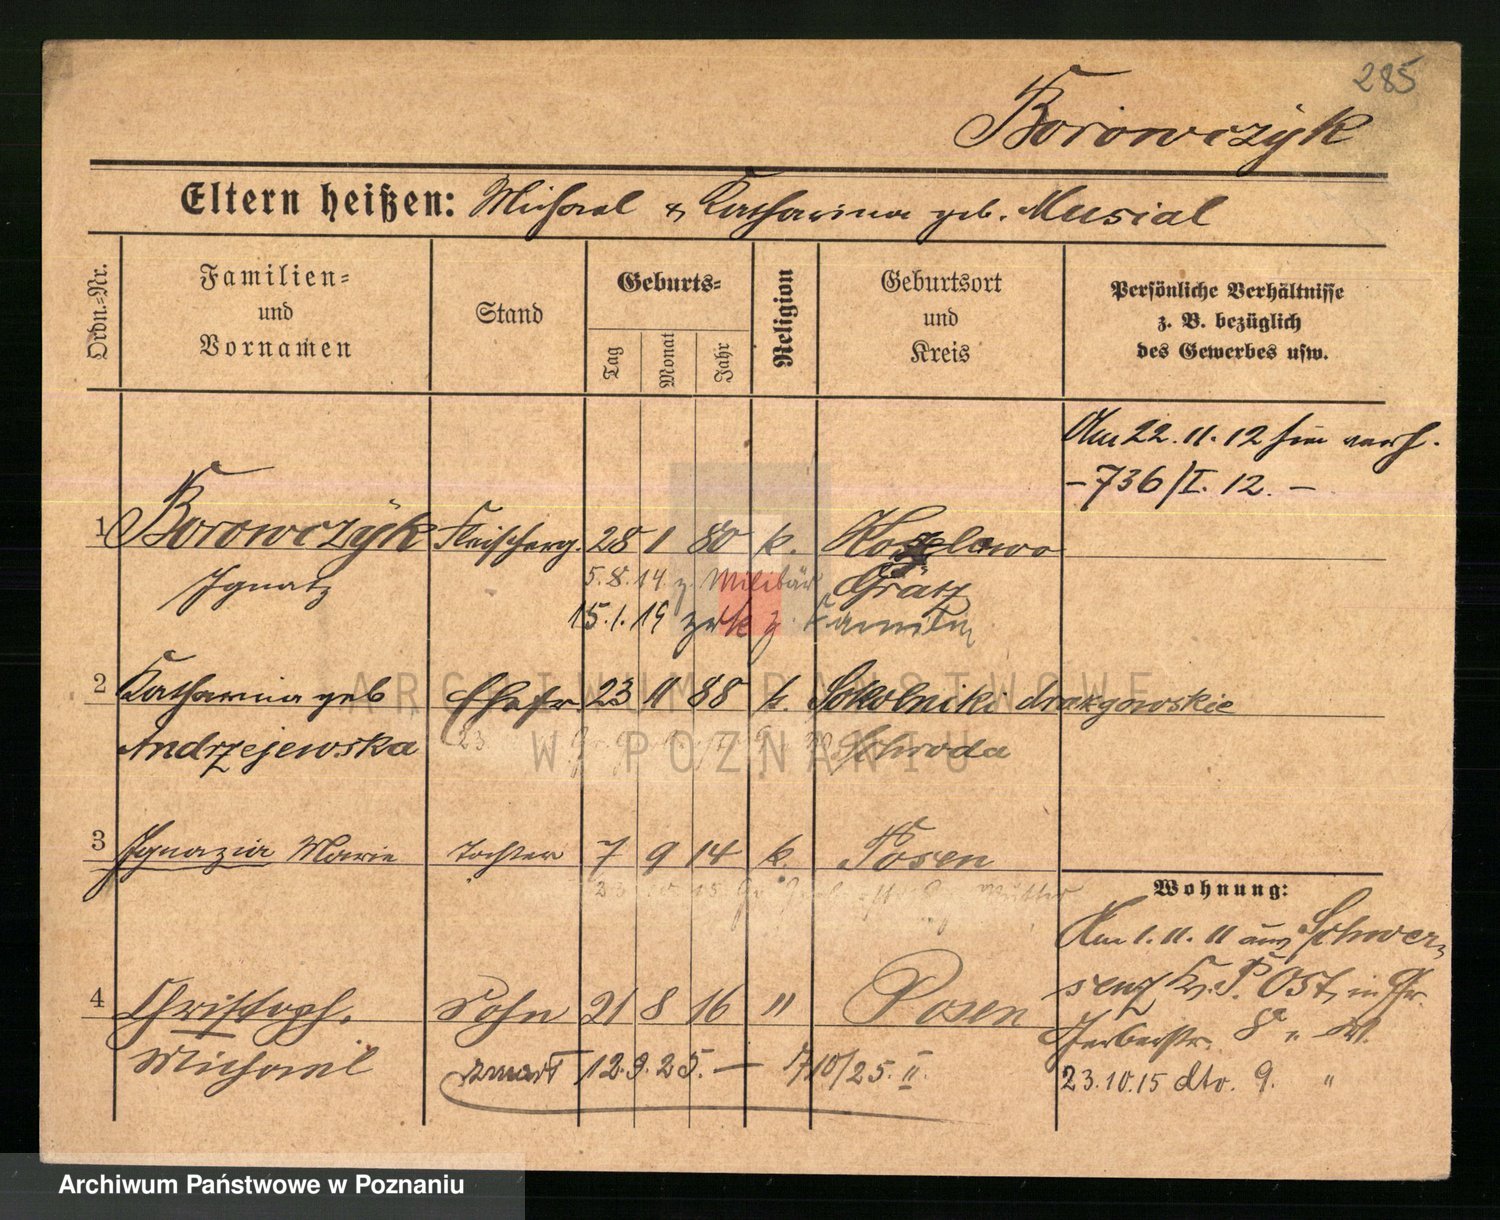 285
Borowczÿk
Eltern heißen: Michael & Katharina geb. Musial
Ordn.-Nr.
Familien-
und
Vornamen
Stand
Geburts-
Tag
Monat
Jahr
Religion
Geburtsort
und
Kreis
Persönliche Verhältnisse
z. B. bezüglich
des Gewerbes usw.
Am 22. 11. 12 hier verh.
- 736/I. 12. -
1 Borowczÿk Fleischerg. 28 1 80 k. Koslowo
Ignatz
Grätz
5. 8. 14. z. Militär
15. 1. 19 zrk z. Familie
2 Katharina geb Ehefr. 23 11 88 k. Sokolniki drakgowskie
Andrzejewska
Schroda
3 Ignazia Marie Tochter 7 9 14 k. Posen
Mutter
4 Christoph. Sohn 21 8 16 " Posen
Michael
zmarł 12. 9. 25. - 1710/25. II.
Wohnung:
Am 1. 11. 11 aus Schwer-
senz Kr. P. Ost, in Gr.
Gerberstr. 8 " M.
23. 10. 15 dto. 9. "
ARCHIWUM PAŃSTWOWE
W POZNANIU
Archiwum Państwowe w Poznaniu